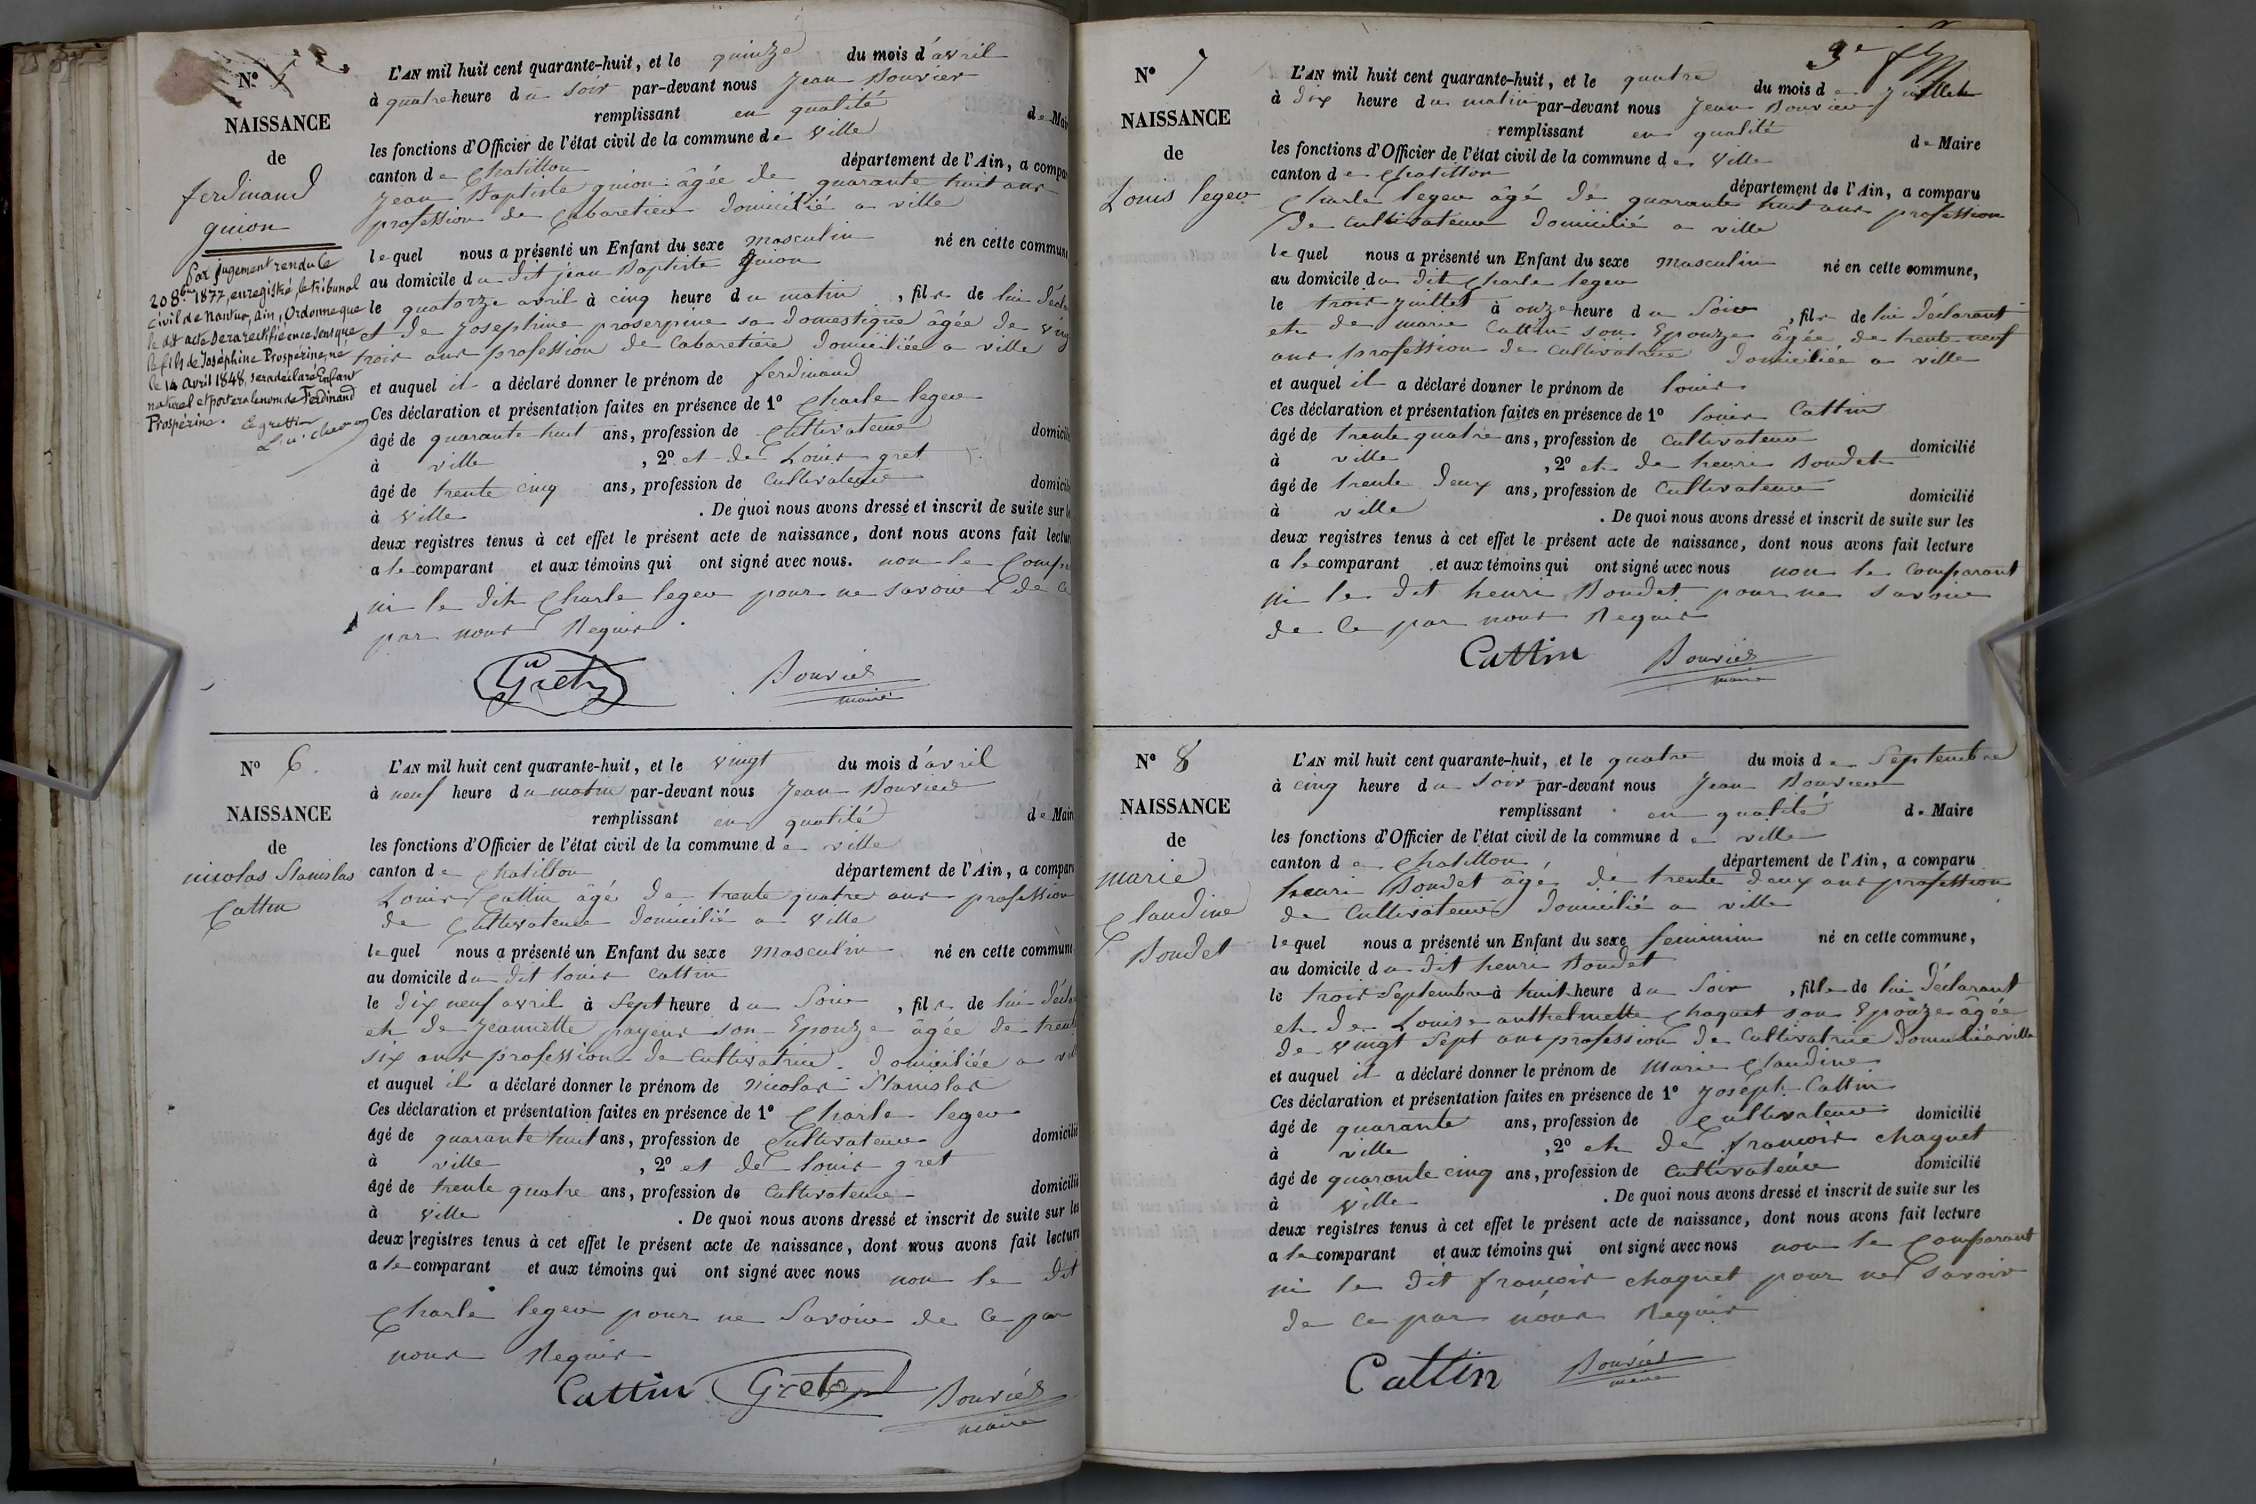 N° 5
NAISSANCE
de
ferdinand
guion
Par jugement rendu le
20 8bre 1877, enregistré, le tribunal
civil de Nantua, ain, Ordonne que
le dit acte sera rectifié en ce sens que
le fils de Joséphine Prospérine, né
le 14 avril 1848, sera déclaré Enfant
naturel et portera le nom de Ferdinand
Prospérine. Le greffier
L'AN mil huit cent quarante-huit, et le quinze du mois d'avril
à quatre heure du soir par-devant nous Jean Bouvier
remplissant en qualité de Mair
les fonctions d'Officier de l'état civil de la commune de ville
canton de Chatillon département de l'Ain, a compa
Jean Baptiste guion âgée de quarante huit ans
profession de Cabaretier domicilié a ville
le quel nous a présenté un Enfant du sexe masculin né en cette commune
au domicile du dit jean Baptiste guion
le quatorze avril à cinq heure du matin, fils de lui décla
et de Josephine proserpine sa domestique âgée de ving
trois ans profession de Cabaretière domiciliée a ville
et auquel il a déclaré donner le prénom de ferdinand
Ces déclaration et présentation faites en présence de 1° Charle leger
âgé de quarante huit ans, profession de Cultivateur domicili
à ville, 2° et de Louis gret
âgé de trente cinq ans, profession de Cultivateur domicili
à ville. De quoi nous avons dressé et inscrit de suite sur le
deux registres tenus à cet effet le présent acte de naissance, dont nous avons fait lectur
a le comparant et aux témoins qui ont signé avec nous. non le Compa
ni le dit Charle leger pour ne savoir de ce
par nous Requis.
Gret Bouvier
maire
N° 6.
NAISSANCE
de
nicolas Stanislas
Cattin
L'AN mil huit cent quarante-huit, et le vingt du mois d'avril
à neuf heure du matin par-devant nous Jean Bouvier
remplissant en qualité de Mair
les fonctions d'Officier de l'état civil de la commune de ville
canton de Chatillon département de l'Ain, a comparu
Louis Cattin âgé de trente quatre ans profession
de Cultivateur domicilié a ville
le quel nous a présenté un Enfant du sexe masculin né en cette commune
au domicile du dit louis cattin
le dix neuf avril à sept heure du Soir, fils de lui décla
et de Jeannette payeur son Epouze âgée de trente
six ans profession de Cultivatrice domiciliée a vill
et auquel il a déclaré donner le prénom de Nicolas Stanislas
Ces déclaration et présentation faites en présence de 1° Charle leger
âgé de quarante huit ans, profession de Cultivateur domicilié
à ville, 2° et de louis gret
âgé de trente quatre ans, profession de Cultivateur domicilié
à ville. De quoi nous avons dressé et inscrit de suite sur les
deux registres tenus à cet effet le présent acte de naissance, dont nous avons fait lecture
a le comparant et aux témoins qui ont signé avec nous non le dit
Charle leger pour ne Savoir de ce par
nous Requis
Cattin Gret Bouvier
maire
3e
N° 7
NAISSANCE
de
Louis leger
L'AN mil huit cent quarante-huit, et le quatre du mois de Juillet
à dix heure du matin par-devant nous Jean Bouvier
remplissant en qualité de Maire
les fonctions d'Officier de l'état civil de la commune de Ville
canton de Chatillon département de l'Ain, a comparu
Charle leger âgé de quarante huit ans profession
de cultivateur domicilié a ville
le quel nous a présenté un Enfant du sexe masculin né en cette commune,
au domicile du dit Charle leger
le trois Juillet à onze heure du Soir, fils de lui déclarant
et de marie Cattin son Epouze âgée de trente neuf
ans profession de Cultivatrice domiciliée a ville
et auquel il a déclaré donner le prénom de louis
Ces déclaration et présentation faites en présence de 1° louis Cattin
âgé de trente quatre ans, profession de Cultivateur domicilié
à ville, 2° et de henri Boudet
âgé de trente deux ans, profession de Cultivateur domicilié
à ville. De quoi nous avons dressé et inscrit de suite sur les
deux registres tenus à cet effet le présent acte de naissance, dont nous avons fait lecture
a le comparant et aux témoins qui ont signé avec nous non le Comparant
ni le dit henri Boudet pour ne savoir
de Ce par nous Requis
Cattin Bouvier
maire
N° 8
NAISSANCE
de
marie
Claudine
Boudet
L'AN mil huit cent quarante-huit, et le quatre du mois de Septembre
à cinq heure du Soir par-devant nous Jean Bouvier
remplissant en qualité de Maire
les fonctions d'Officier de l'état civil de la commune de ville
canton de Chatillon département de l'Ain, a comparu
henri Boudet âgé de trente deux ans profession
de Cultivateur domicilié a ville
le quel nous a présenté un Enfant du sexe feminin né en cette commune,
au domicile du dit henri Boudet
le trois Septembre à huit heure du Soir, fille de lui déclarant
et de Louise anthelmette Chaquet son Epouze âgée
de vingt Sept ans profession de Cultivatrice domiciliée a ville
et auquel il a déclaré donner le prénom de Marie Claudine
Ces déclaration et présentation faites en présence de 1° Joseph Cattin
âgé de quarante ans, profession de Cultivateur domicilié
à ville, 2° et de francois chaquet
âgé de quarante cinq ans, profession de Cultivateur domicilié
à Ville. De quoi nous avons dressé et inscrit de suite sur les
deux registres tenus à cet effet le présent acte de naissance, dont nous avons fait lecture
a le comparant et aux témoins qui ont signé avec nous non le Comparant
ni le dit francois chaquet pour ne savoir
de ce par nous Requis
Cattin Bouvier
maire